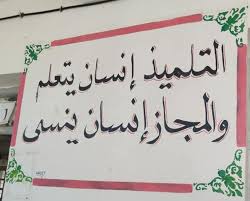 التلميذ إنسان يتعلم
والمجاز إنسان ينسى